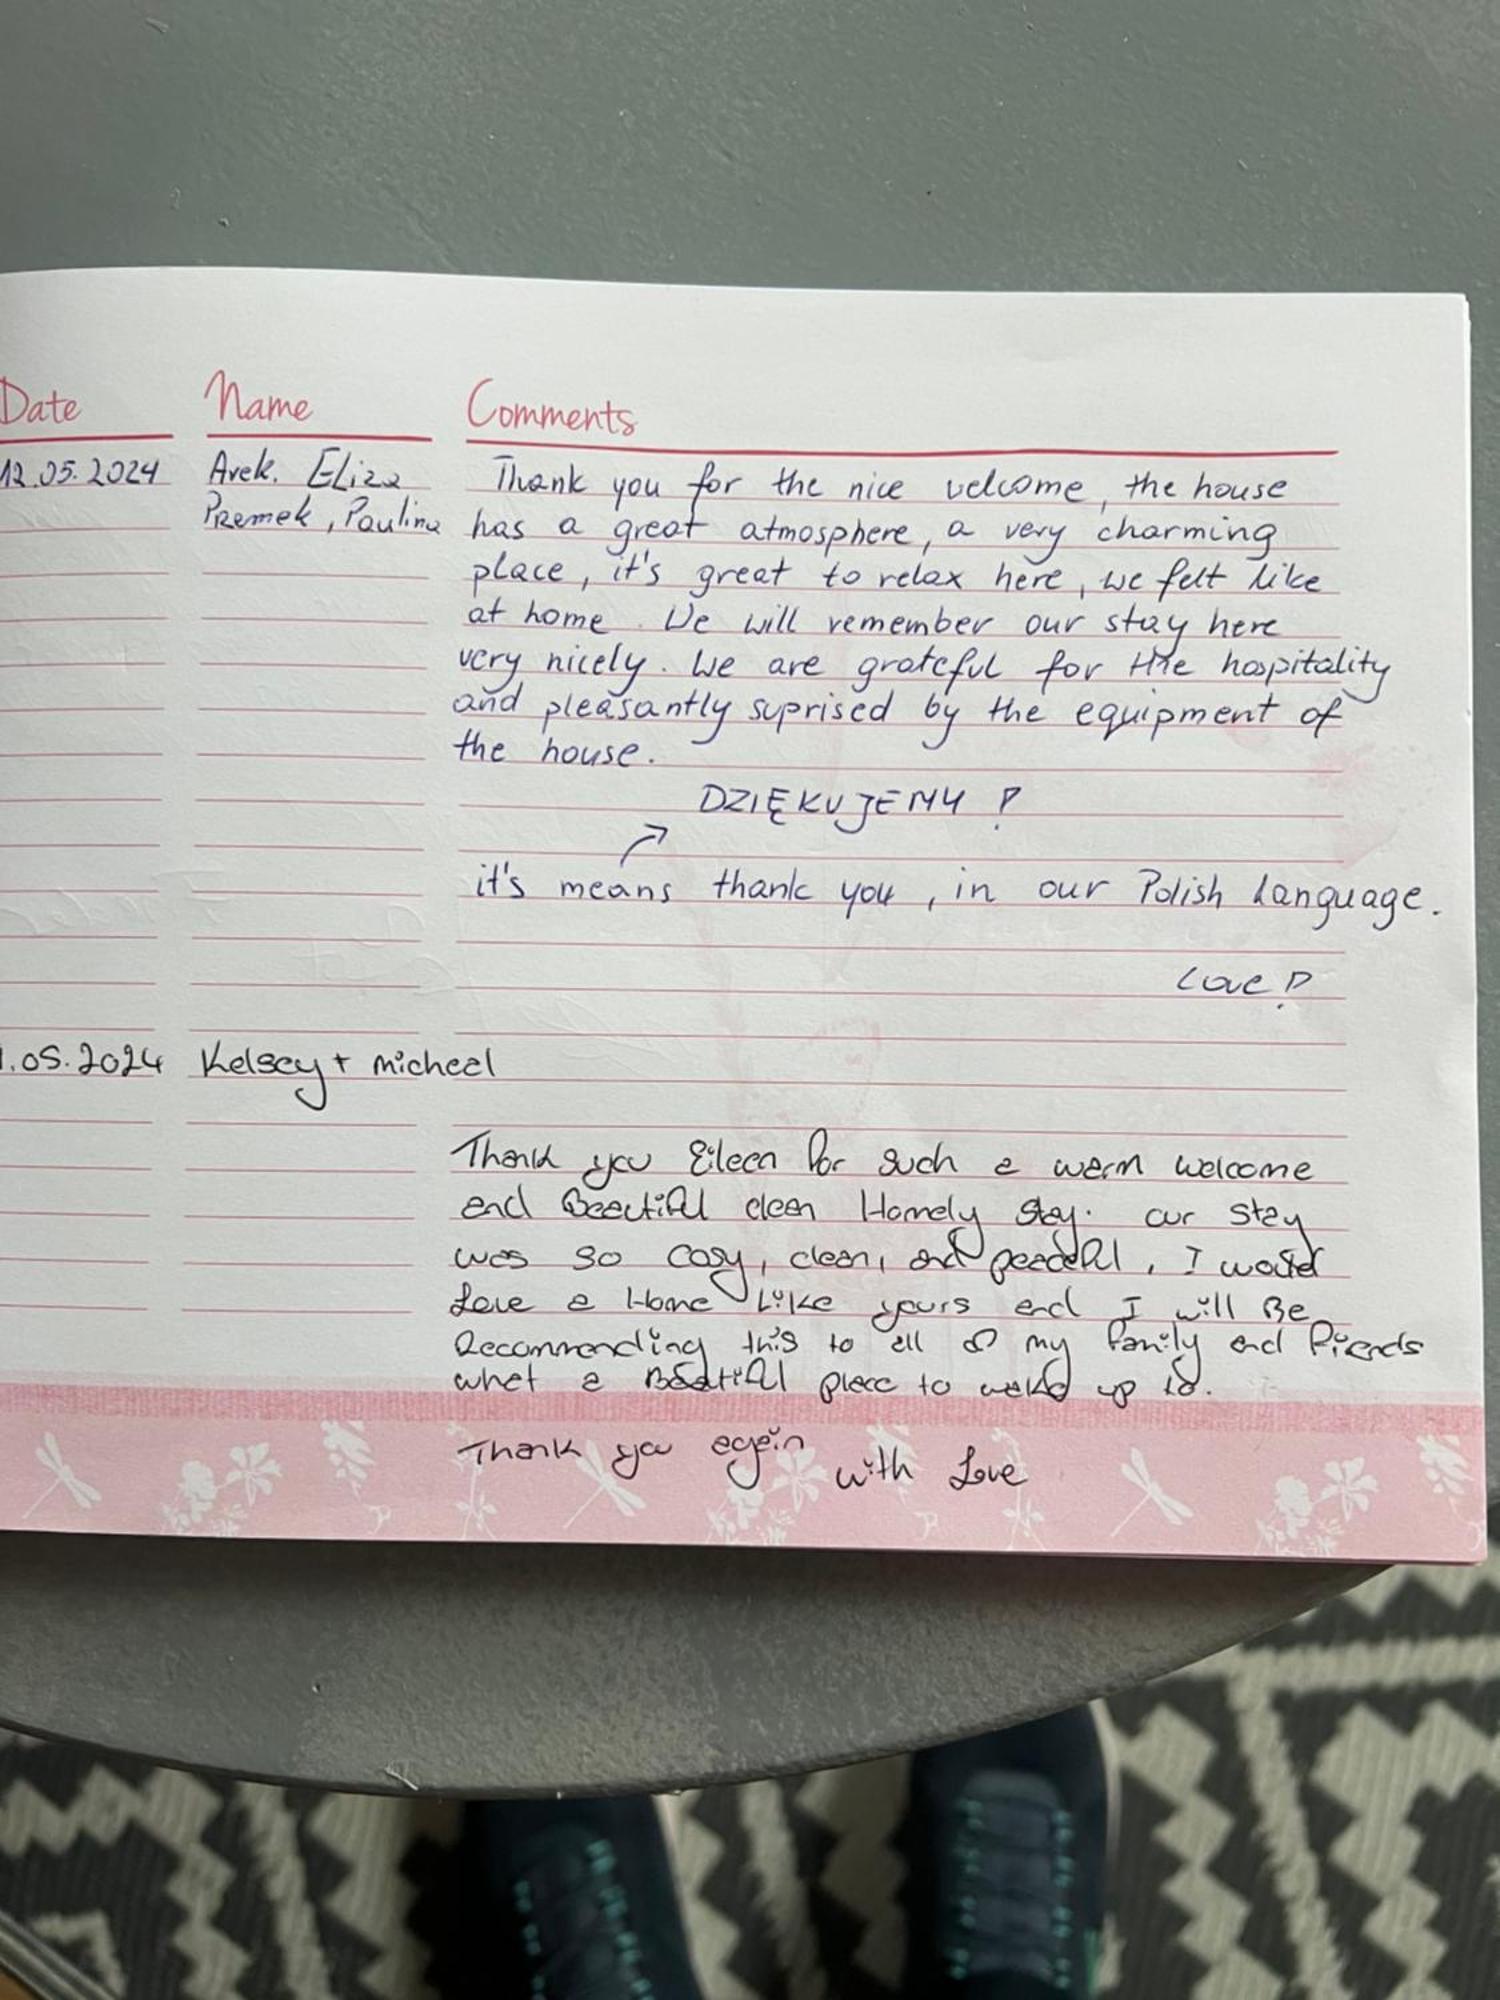 Date Name Comments
12.05.2024 Arek. Eliza Thank you for the nice velcome, the house
Przemek, Paulina has a great atmosphere, a very charming
place, it's great to relax here, we felt like
at home. We will remember our stay here
very nicely. We are grateful for the hospitality
and pleasantly suprised by the equipment of
the house.
DZIĘKUJEMY!
it's means thank you, in our Polish Language.
Love!
1.05.2024 Kelsey + micheal
Thank you Eileen for such a warm welcome
and Beautiful clean Homely stay. our stay
was so cosy, clean, and peaceful, I would
Love a Home Like yours and I will Be
Recommending this to all of my family and friends
what a Beautiful place to up to.
Thank you again
with Love